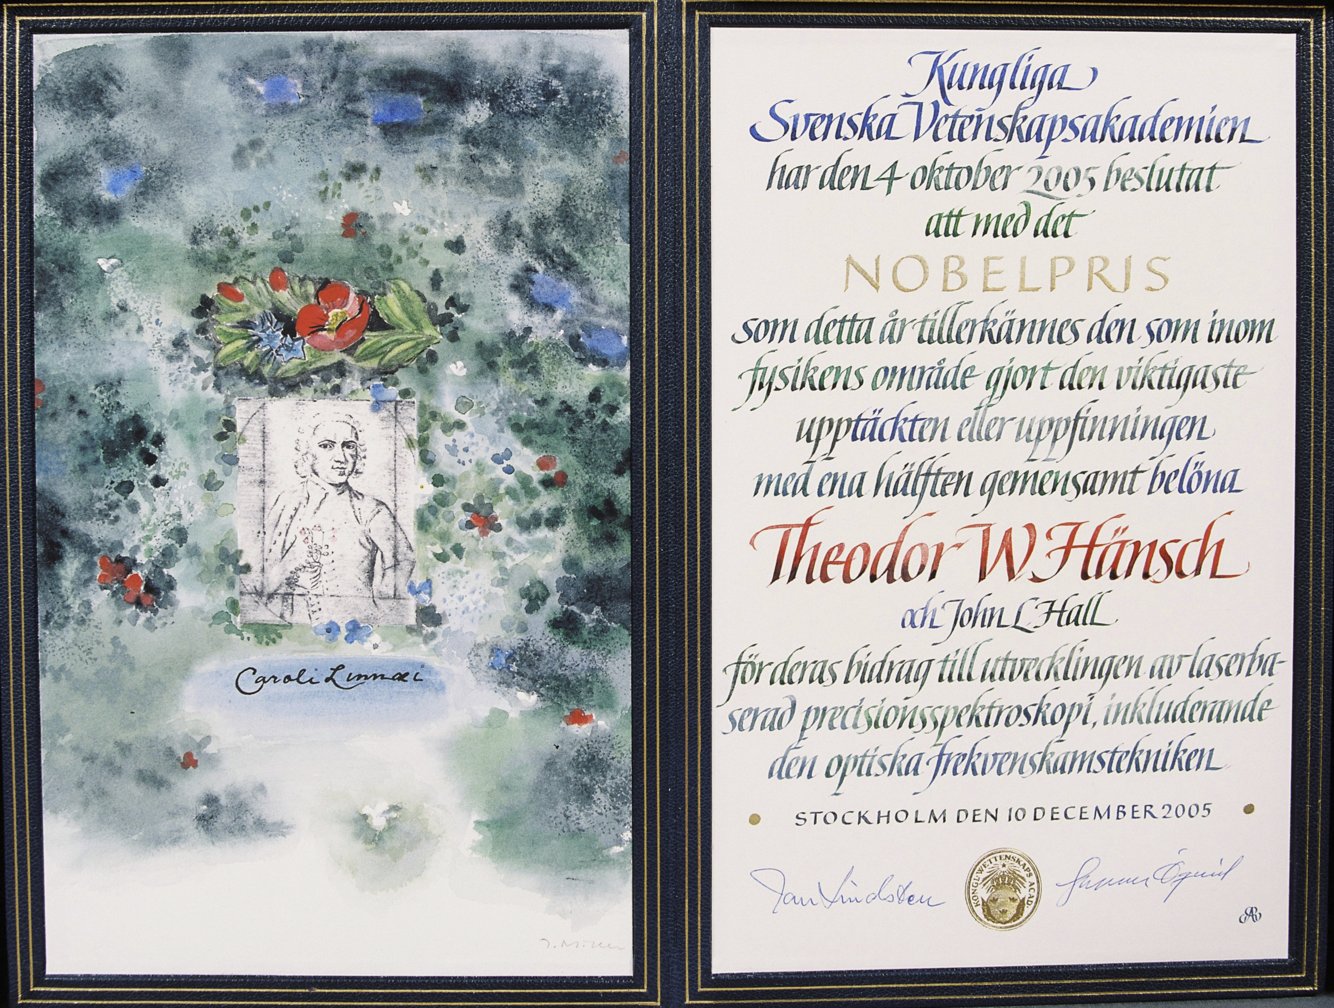 Caroli Linnæi
Kungliga
Svenska Vetenskapsakademien
har den 4 oktober 2005 beslutat
att med det
NOBELPRIS
som detta år tillerkännes den som inom
fysikens område gjort den viktigaste
upptäckten eller uppfinningen
med ena hälften gemensamt belöna
Theodor W. Hänsch
och John L Hall
för deras bidrag till utvecklingen av laserba-
serad precisionsspektroskopi, inkluderande
den optiska frekvenskamstekniken
• STOCKHOLM DEN 10 DECEMBER 2005 •
Jan Lindsten Gunnar Öquist
KONGL. WETTENSKAPS ACAD.